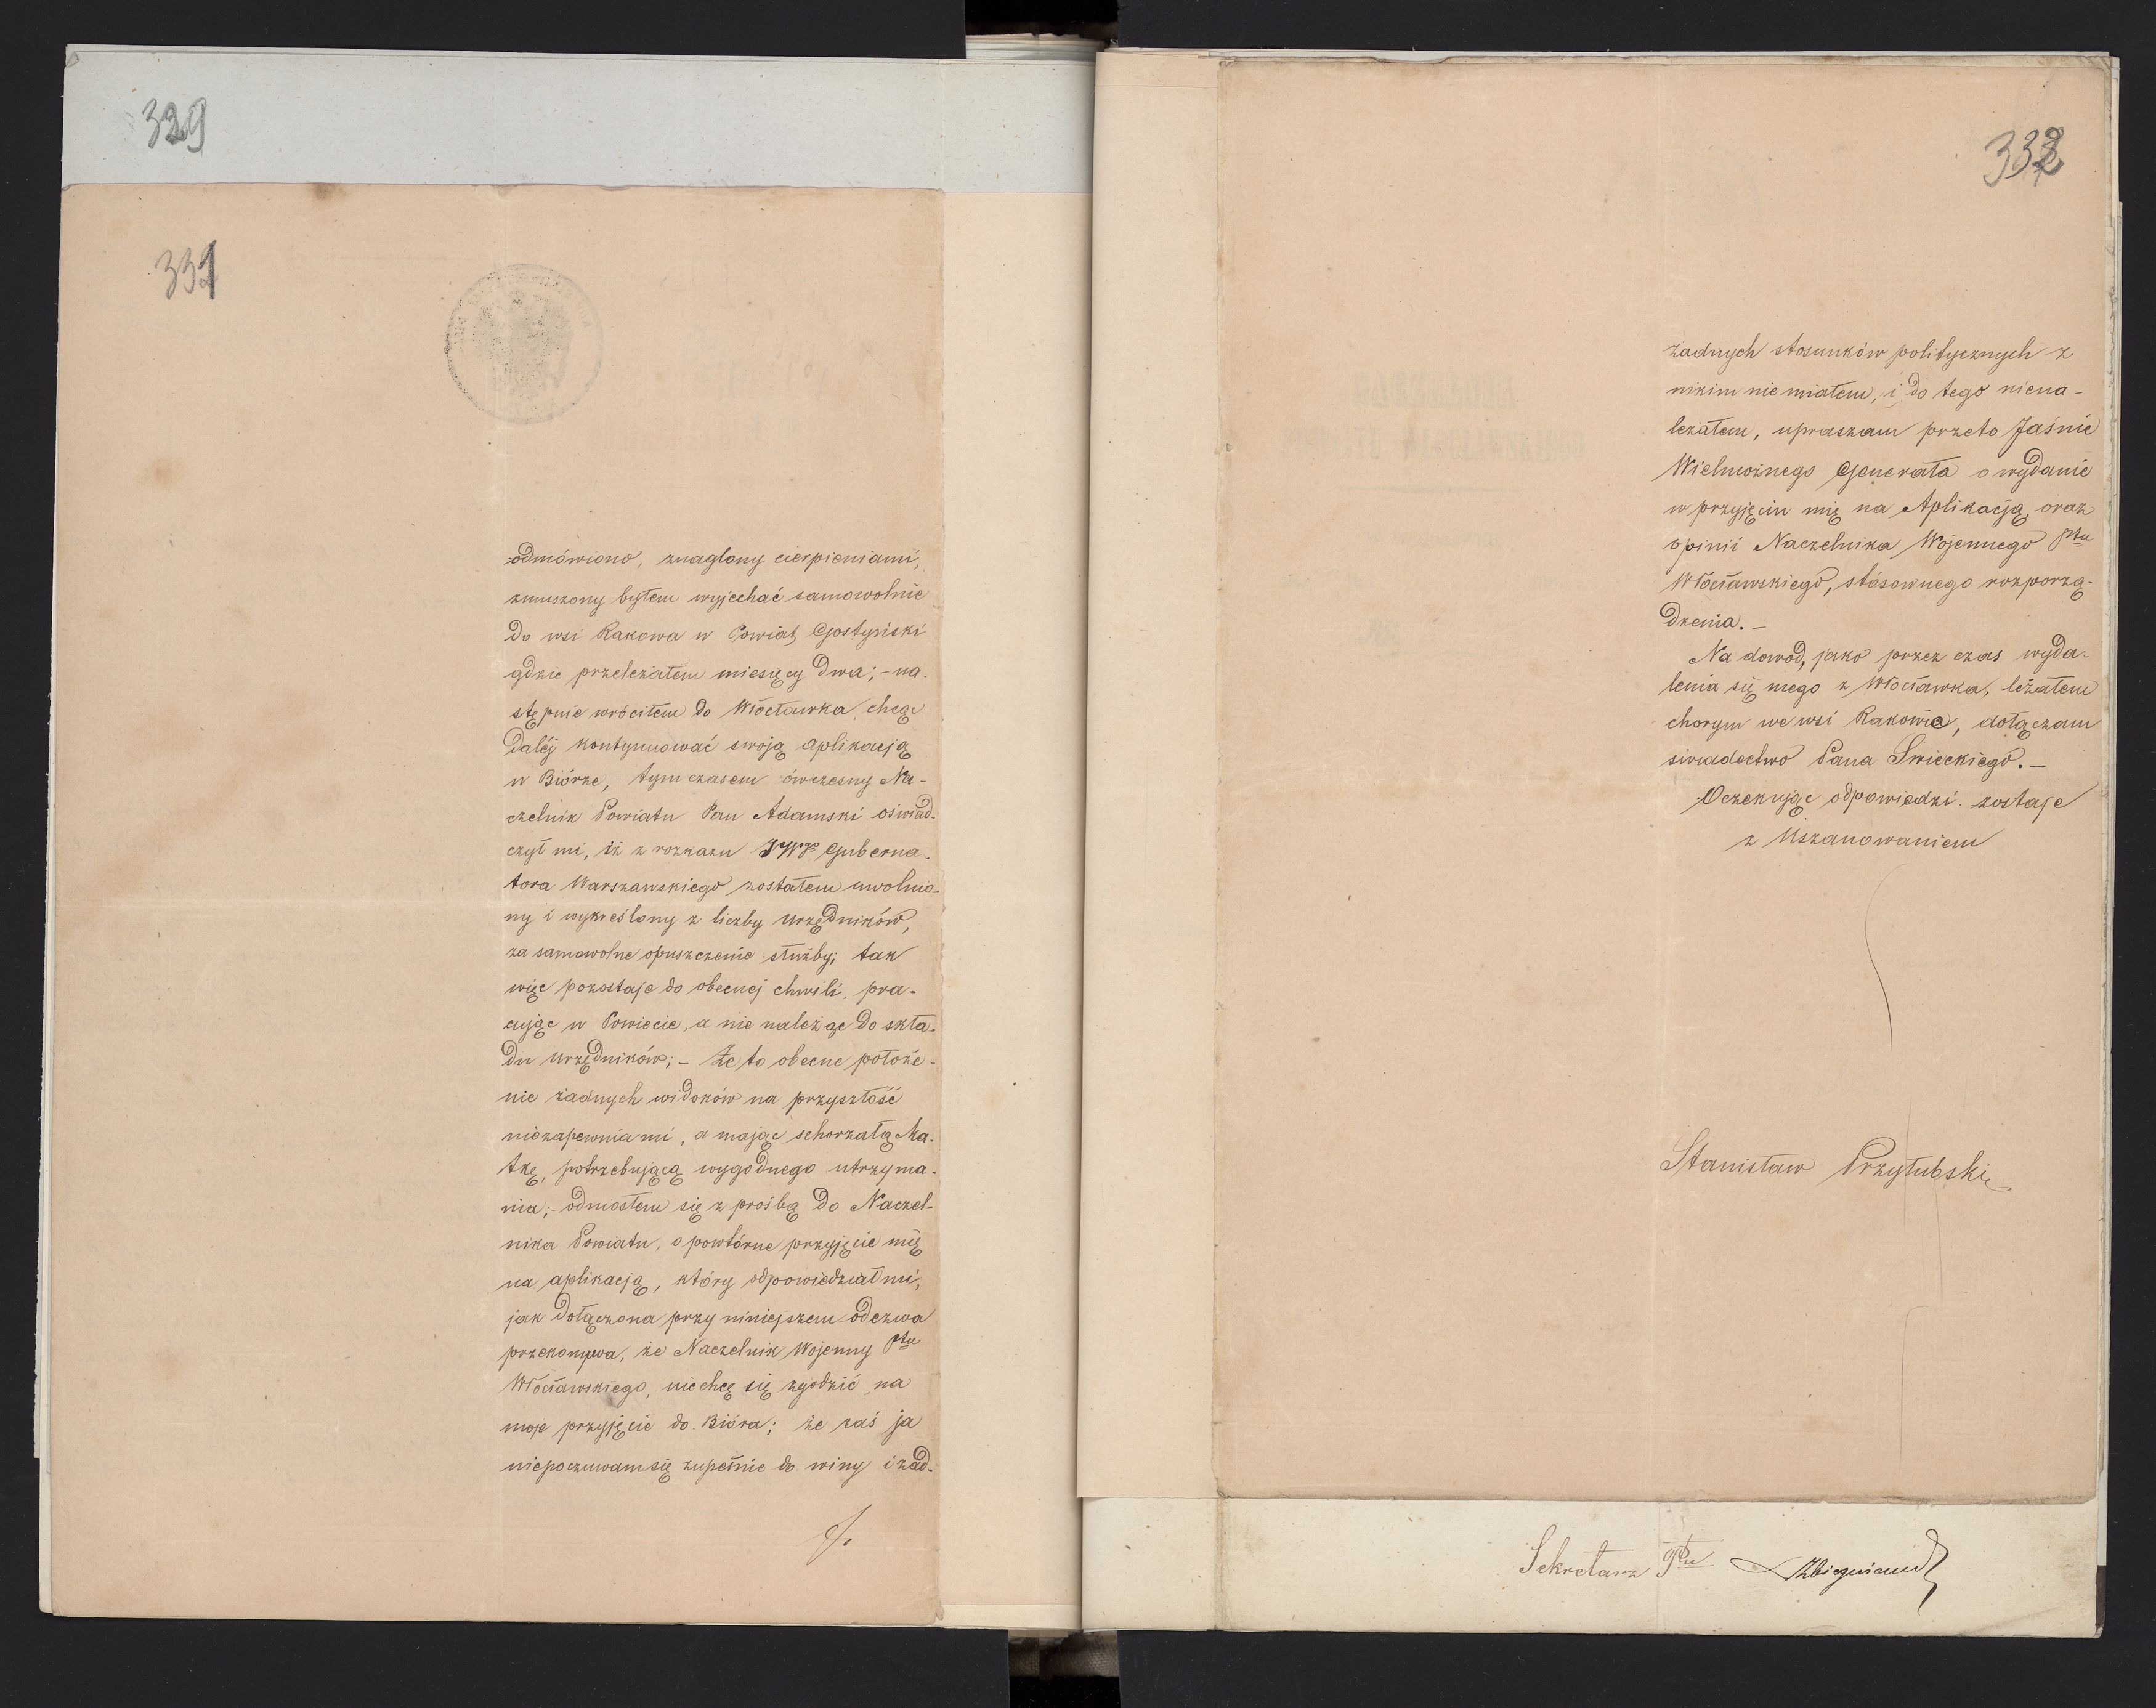 329
331
odmówiono, znaglony cierpieniami,
zmuszony byłem wyjechać samowolnie
do wsi Rakowa w Powiat Gostyński
gdzie przeleżałem miesięcy dwa; – na-
stępnie wróciłem do Włocławka chcąc
daléj kontynuować swoją aplikacją
w Biórze, tymczasem ówczesny Na-
czelnik Powiatu Pan Adamski oświad-
czył mi, iż z rozkazu JWgo Guberna-
tora Warszawskiego zostałem uwolnio-
ny i wykreślony z liczby urzędników,
za samowolne opuszczenie służby; tak
więc pozostaje do obecnej chwili, pra-
cując w Powiecie, a nie należąc do skła-
du urzędników; – Że to obecne położe-
nie żadnych widoków na przyszłość
niezapewnia mi, a mając schorzałą Ma-
tkę, potrzebującą wygodnego utrzyma-
nia; odniosłem się z prośbą do Naczel-
nika Powiatu, o powtórne przyjęcie mię
na aplikacją, który odpowiedział mi,
jak dołączona przy niniejszem odezwa
przekonywa, że Naczelnik Wojenny Ptu
Włocławskiego, niechcę się zgodzić na
moje przyjęcie do Bióra; że zaś ja
niepoczuwam się zupełnie do winy i żad-
332
żadnych stosunków politycznych z
nikim nie miałem, i do tego niena-
leżałem, upraszam przeto Jaśnie
Wielmożnego Generała o wydanie
w przyjęciu mię na Aplikacją, oraz
opinii Naczelnika Wojennego Ptu
Włocławskiego, stósownego rozporzą-
dzenia. –
Na dowod, jako przez czas wyda-
lenia się mego z Włocławka, leżałem
chorym we wsi Rakowie, dołączam
świadectwo Pana Swieckiego. –
Oczekując odpowiedzi zostaje
z Uszanowaniem
Stanisław Przyłubski
Sekretarz Ptu